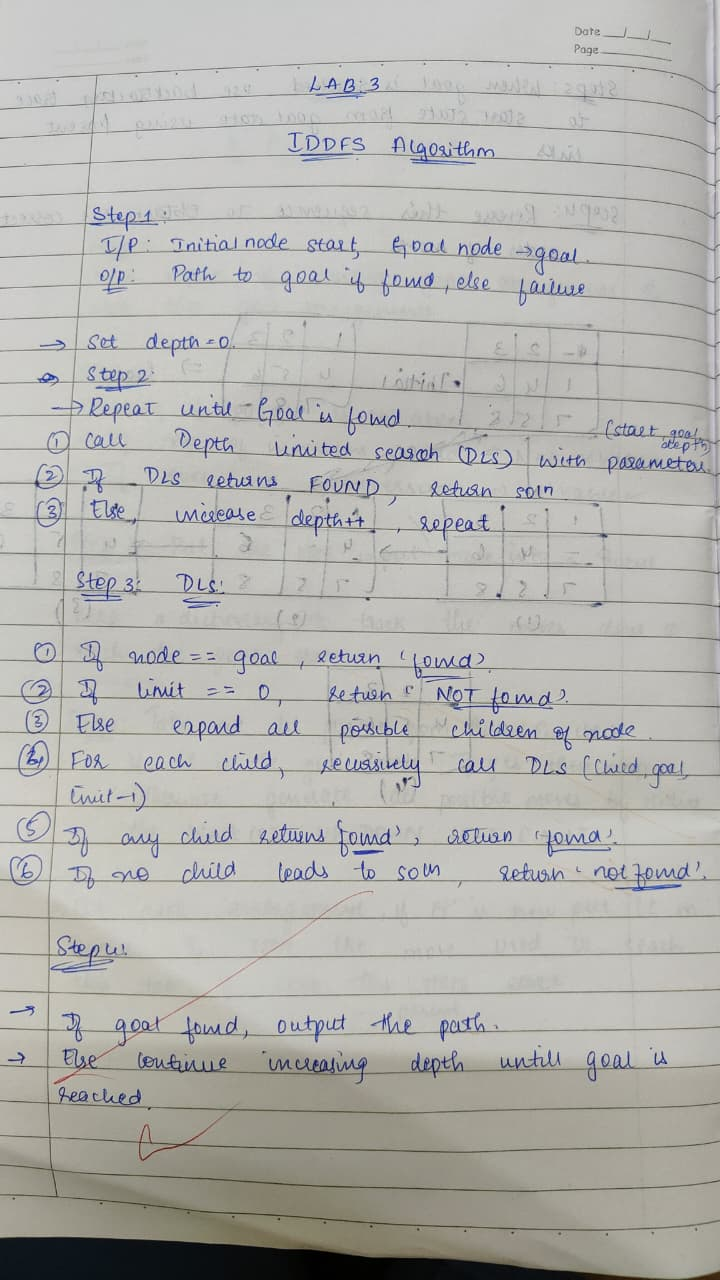 Date __/__/__
Page ____
LAB: 3
IDDFS Algorithm
Step 1:
I/P: Initial node start, Goal node → goal.
O/P: Path to goal if found, else failure
→ Set depth = 0.
→ Step 2:
→ Repeat until Goal is found.
① Call Depth limited search (DLS) with parameter (start goal depth)
② If DLS returns FOUND, return soln
③ Else, increase depth++, repeat
Step 3: DLS:
① If node == goal, return 'found'.
② If limit == 0, return 'NOT found'.
③ Else expand all possible children of node.
④ For each child, recursively call DLS (child, goal,
limit-1)
⑤ If any child returns 'found', return 'found'.
⑥ If no child leads to soln, return 'not found'.
Step 4:
→ If goal found, output the path.
→ Else continue increasing depth untill goal is
reached.